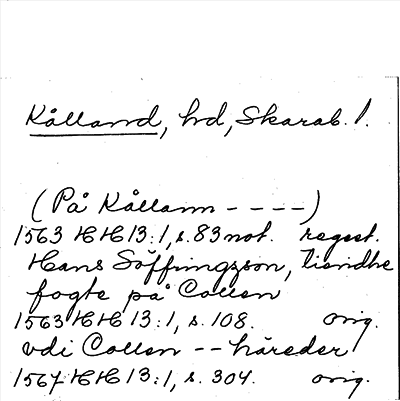 Kålland, hd, Skarab. l.
(På Kållann - - - -)
1563 HH 13:1, s. 83 not. regest.
Hans Söffringzson, tiendhe
fogte på Collen
1563 HH 13:1, s. 108. orig.
vdi Collen -- häreder
1567 HH 13:1, s. 304. orig.